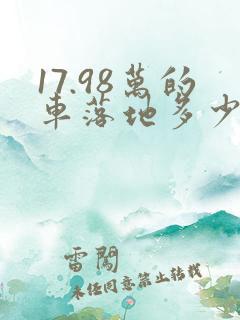 17.98萬的
車落地多少
雷闖
未经同意禁止转载